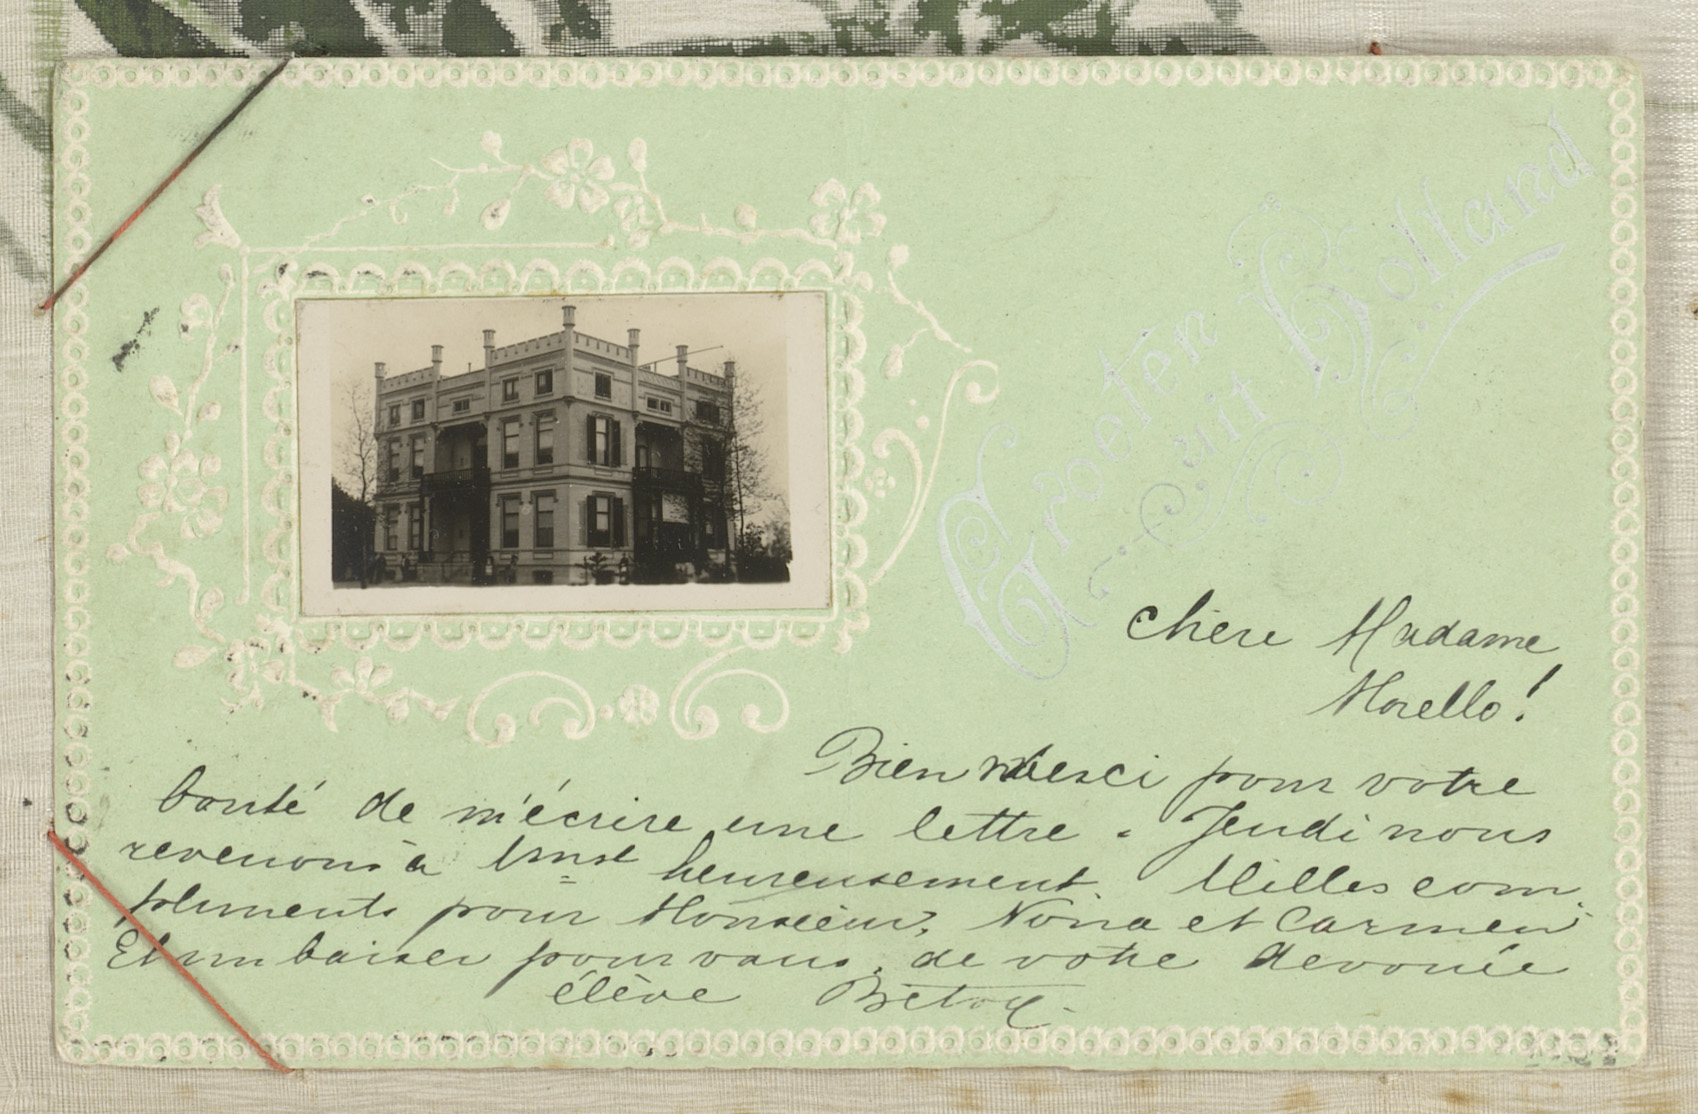 Groeten
uit Holland
Chère Madame
Morello!
Bien merci pour votre
bonté de m'écrire une lettre. Jeudi nous
revenons à heureusement. Milles com-
pliments pour Monsieur, Nona et Carmen
Et un baiser pour vous, de votre devouée
élève Betsy.